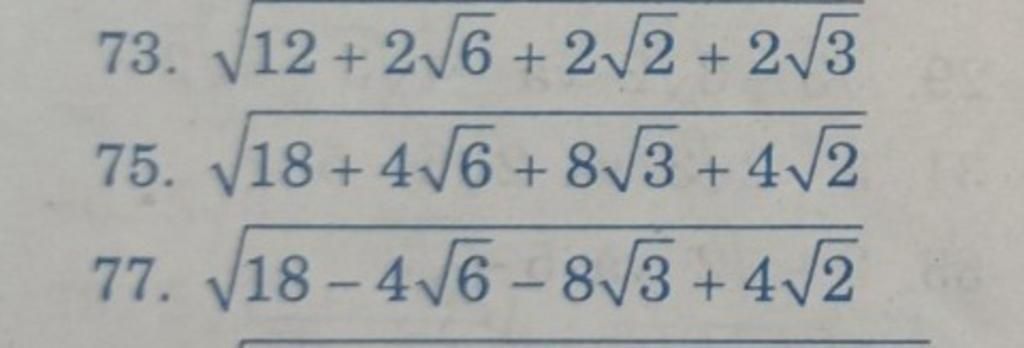 73. √(12 + 2√6 + 2√2 + 2√3)
75. √(18 + 4√6 + 8√3 + 4√2)
77. √(18 – 4√6 – 8√3 + 4√2)